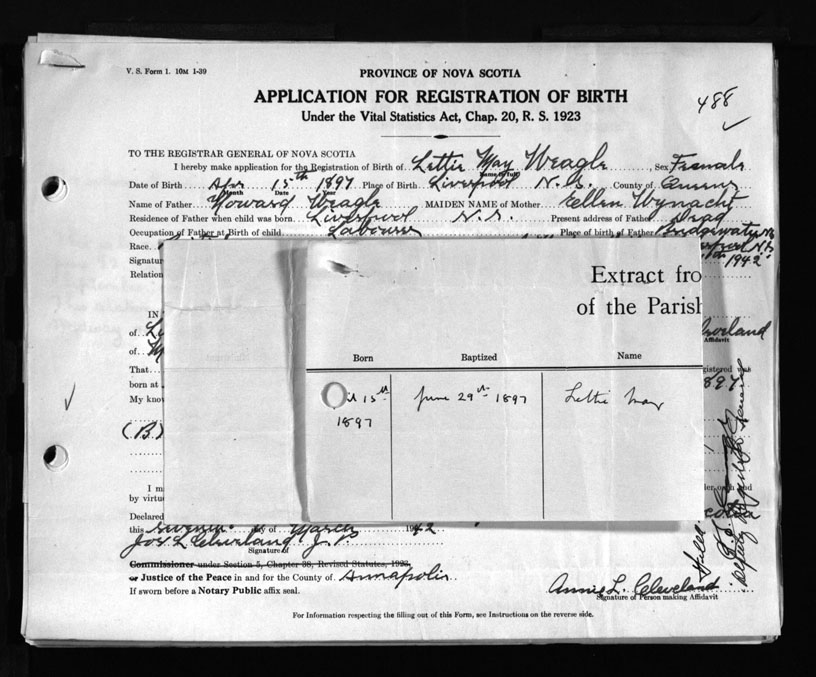 V. S. Form 1. 10M 1-39
PROVINCE OF NOVA SCOTIA
APPLICATION FOR REGISTRATION OF BIRTH
Under the Vital Statistics Act, Chap. 20, R. S. 1923
488
TO THE REGISTRAR GENERAL OF NOVA SCOTIA
I hereby make application for the Registration of Birth of Lettie May Weagle Sex Female
Name in full
Date of Birth Apr 15th 1897 Place of Birth Liverpool N.S. County of Queens
Month Date Year
Name of Father Howard Weagle MAIDEN NAME of Mother Ellen Wynacht
Residence of Father when child was born Liverpool N.S. Present address of Father Dead
Occupation of Father at Birth of child Labourer Place of birth of Father Bridgewater N.S
Race
Signatur 1942
Relation
Extract fro
of the Parish
IN
of Le
Cleveland
Affidavit
of M
Born Baptized Name
That gistered was
born at 897
il 15th June 29th 1897 Lettie May
1897
My know
(B)
I m
by virtu
Declared
this seventh day of March 1942
Jos L Cleveland J. P.
Signature of
Commissioner under Section 5, Chapter 38, Revised Statutes, 1923
or Justice of the Peace in and for the County of Annapolis
If sworn before a Notary Public affix seal.
Annie L. Cleveland
Signature of Person making Affidavit
Deputy Registrar General
For Information respecting the filling out of this Form, see Instructions on the reverse side.